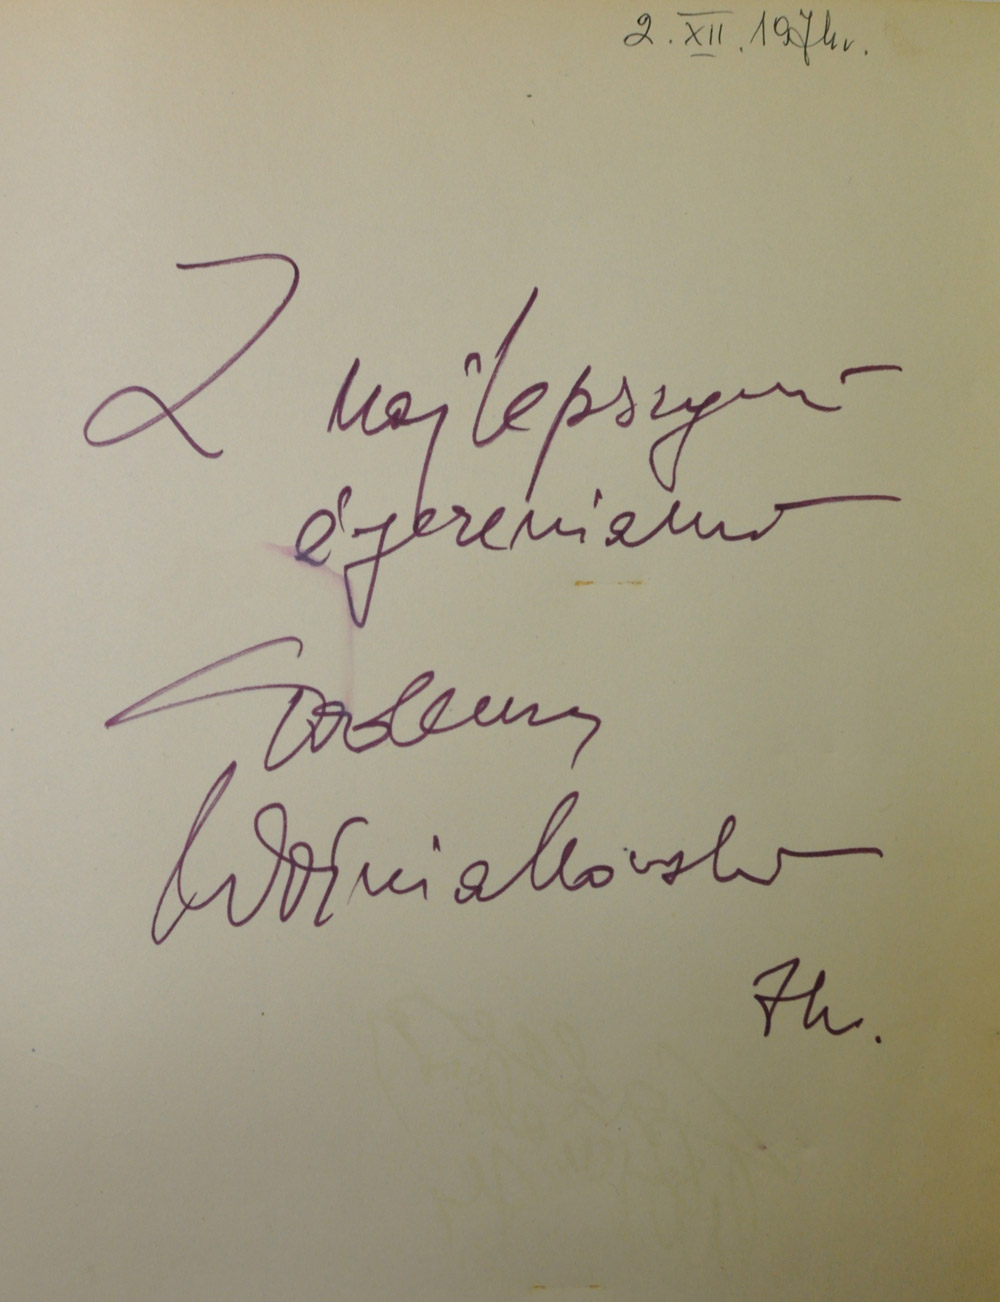 2.XII.1974r.
Z najlepszymi
życzeniami
Tadeusz
Woźniakowski
74r.